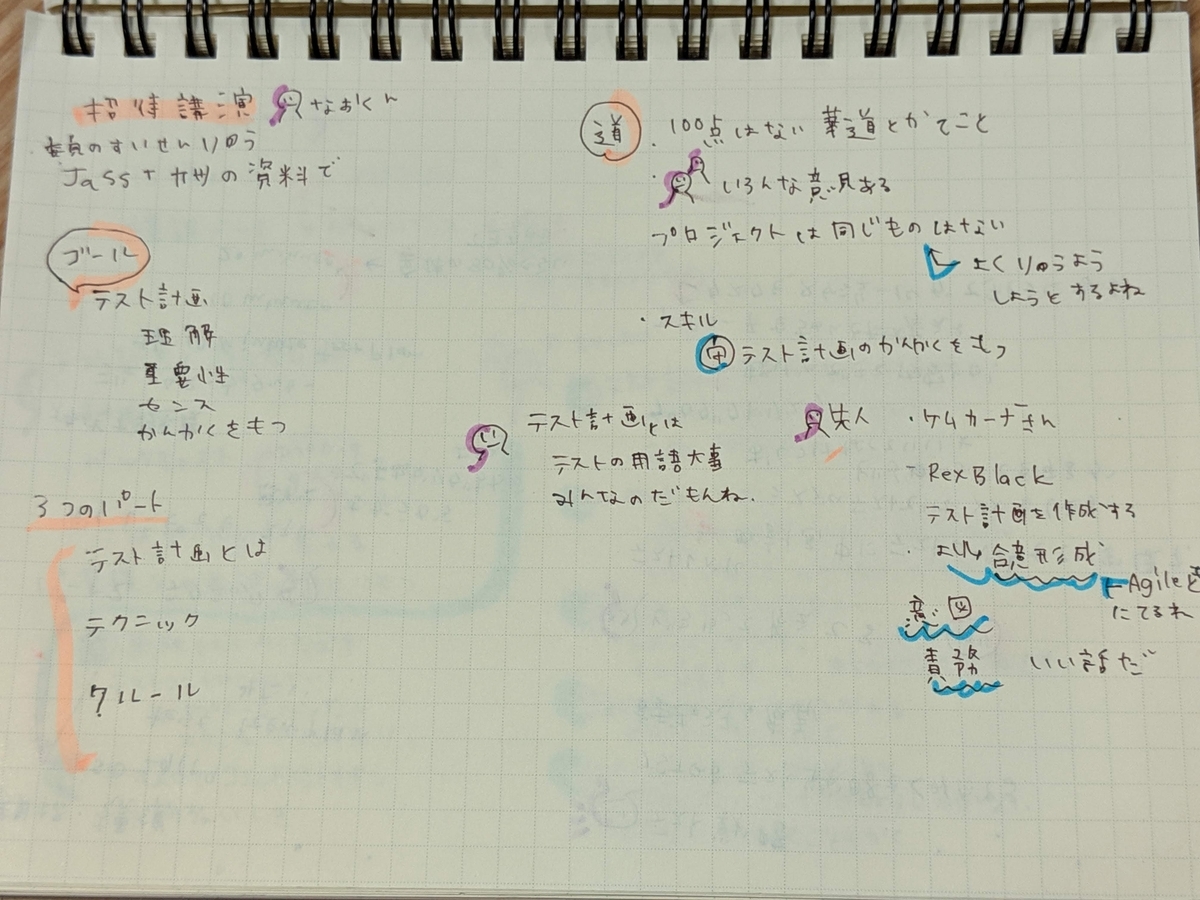 招待講演 なおくん
委員のすいせんりゆう
JaSST 九州の資料で
ゴール
テスト計画
理解
重要性
センス
かんかくをもつ
3つのパート
テスト計画とは
テクニック
7ルール
道
・100点はない 華道とかでこと
・いろんな意見ある
プロジェクトは同じものはない
よくりゅうよう
しようとするよね
・スキル
テスト計画のかんかくをもつ
テスト計画とは
テストの用語大事
みんなのだもんね.
先人 ・ケムカーナさん
・RexBlack
テスト計画を作成する
・よい合意形成
←Agileと
にてるね
意図
責務 いい話だ